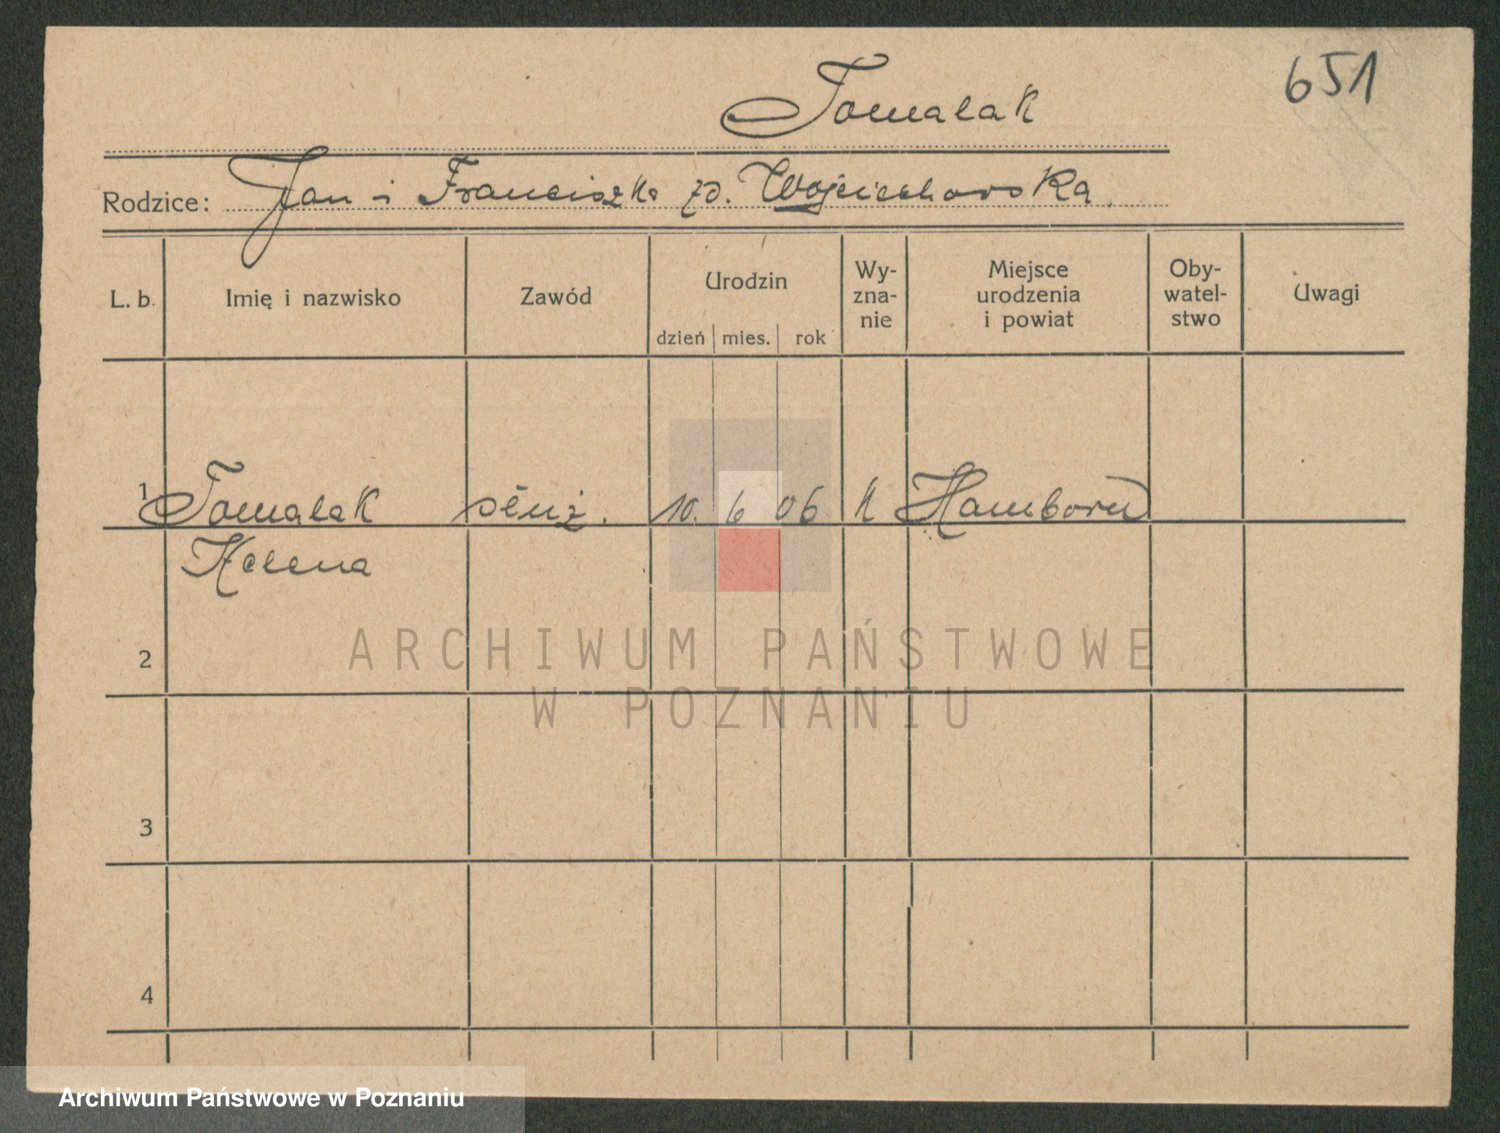 651
Tomalak
Rodzice: Jan i Franciszka zd. Wojciechowska.
L. b. Imię i nazwisko Zawód Urodzin dzień mies. rok Wy-zna-nie Miejsce urodzenia i powiat Oby-watel-stwo Uwagi
1 Tomalak służ. 10. 6 06 k Hamborn
Helena
2
ARCHIWUM PAŃSTWOWE
W POZNANIU
3
4
Archiwum Państwowe w Poznaniu